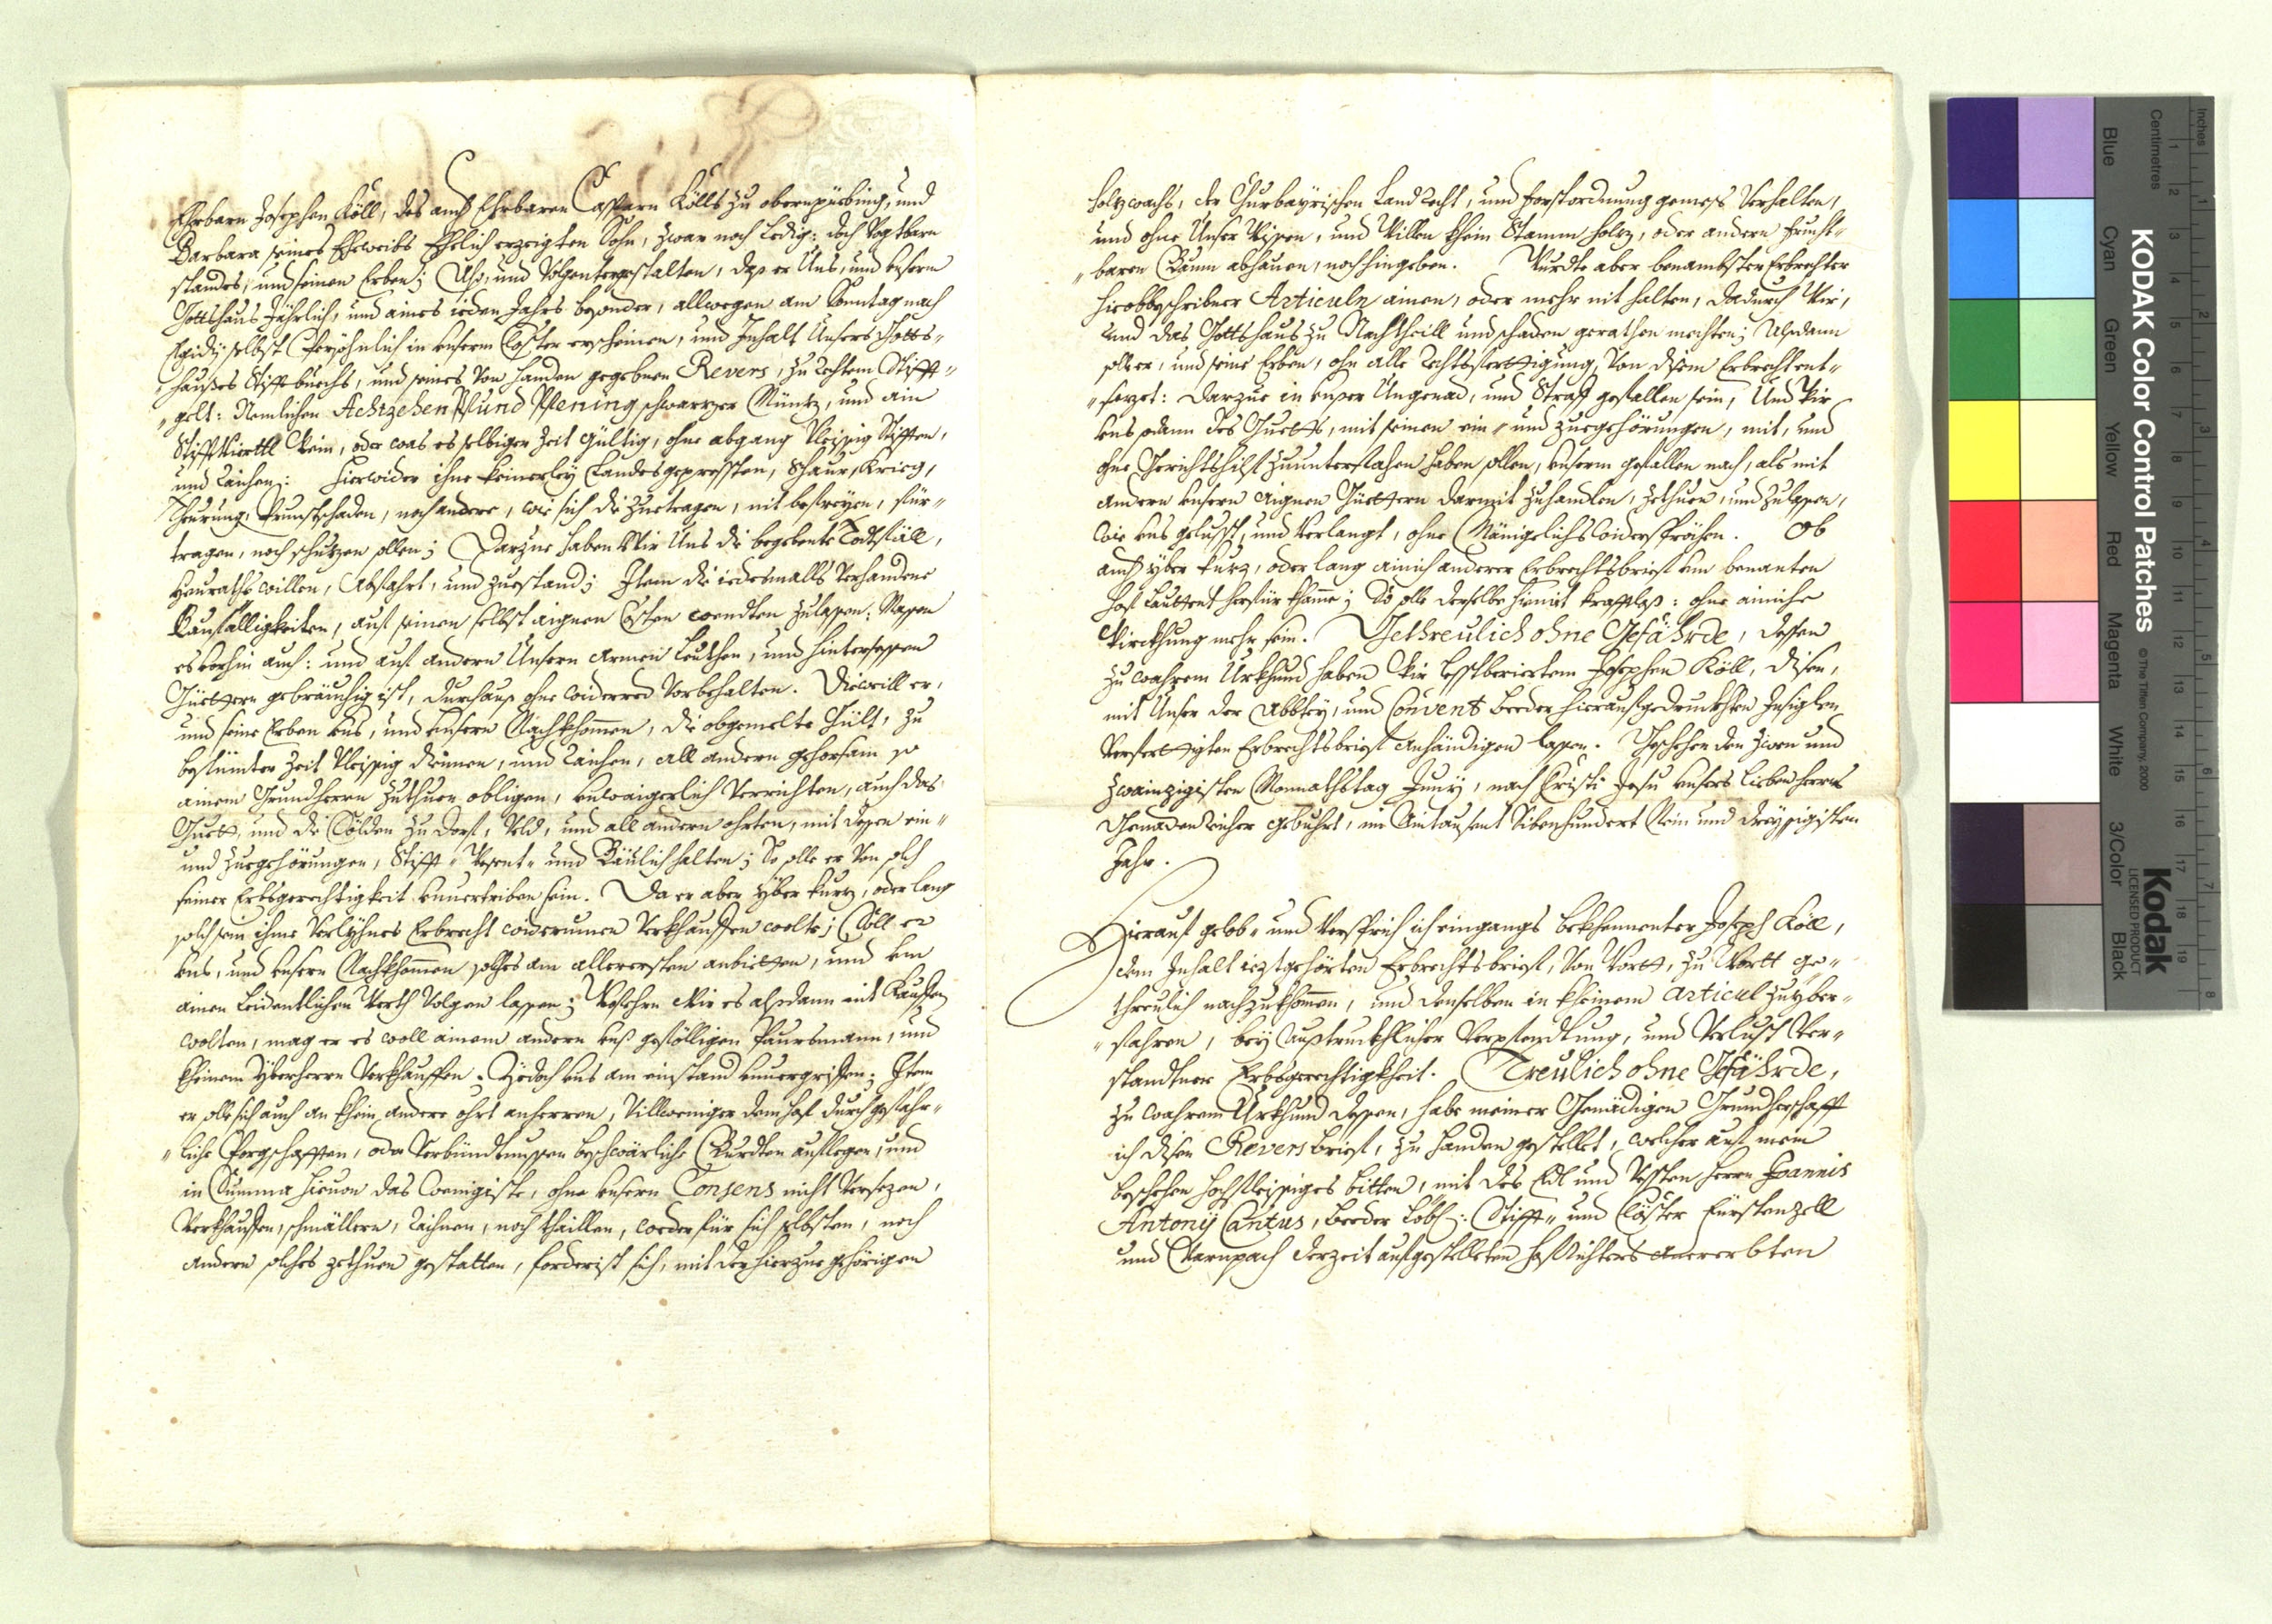 Ehrbarn Josephen Köll, des auch Ehrbaren Casparn Kölls zu obernpürbing, und
Barbara seines Eheweibs Ehelich erzeigten Sohn, zwar noch ledig: doch Vogtbarn
standes, und seinen Erben; Also, und Volgentergestalten, daß er Uns, und unserm
Gottshaus Jährlich, und aines ieden Jahrs besonder, allwegen am Sonntag nach
Egidij selbst Persöhnlich in unserm Closter erscheinen, und Inhalt Unsers Gotts-
haußes Stifftbuechs, und seines von handen gegebnen Revers, zu rechtem Stifft-
gelt: Nemlichen Achtzehen Pfund Pfening schwarzer Müntz, und ain
Stifft Viertl Wein, oder was es selbiger Zeit gültig, ohne abgang Vleissig Stifften,
und raichen: Hierwider ihne keinerley Landtsgepressten, Schaur, Krieg,
Theurung, Prunstschaden, noch andere, wie sich die zuetragen, nit befreyen, für-
tragen, noch schuzen sollen; Darzue haben Wir Uns die begebente Todtfäll,
Heuraths willen, Abfahrt, und Zuestand; Item die iedesmalls verhandene
Baufälligkeiten, auf seinen selbst aignen Costen wendten zulassen: Massen
es vorhin auch: und auf andern Unsern armen Leuthen, und hintersessen
Güettern gebräuchig ist, durchaus ohne widerred Vorbehalten. Dieweill er,
und seine Erben uns, und unsern Nachkhommen, die obgemelte Gült, zu
bestimter Zeit Vleissig dienen, und raichen, all andern gehorsam so
ainem Grundherrn zuthuen obligen, unwaigerlich verrichten, auch das
Guett, und die Sölden zu Dorf, Veld, und all andern ohrten, mit dessen ein-
und zuegehörungen, Stifft- Wesent- und Bäulich halten; So solle er von solch
seiner Erbsgerechtigkeit unuertriben sein. Da er aber yber kurz, oder lang
solch sein ihme Verlyhnes Erbrecht widerumen Verkhauffen wolte; Soll er
uns, und unsern Nachkhommen solches am allerersten anbietten, und um
ainen Leidentlichen Werth Volgen lassen; Wofehrn Wir es alßdann nit Kauffen
wolten, mag er es woll ainem andern uns gefölligen Paursmann, und
kheinem Yberherrn Verkhauffen. Jedoch uns am einstand unuergriffen; Item
er solle sich auch an khein andere ohrt anherren, Villweniger dem hof durch gefähr-
liche Porgschafften, oder Verbündtnussen beschwärliche Burdten auflegen, und
in Summa hieuon das Wenigiste, ohne unsern Consens nicht Versezen,
Verkhauffen, schmällern, Lichnen, noch thaillen, weder für sich selbsten, noch
andern solches zethuen gestatten, forderist sich, mit der hierzue gehörigen
holzwachs, der Churbayrischen Landrecht, und forstordnung gemess Verhalten,
und ohne Unser Wissen, und Willen khein Stamm holz, oder andern frucht-
baren Baum abhauen, noch hingeben. Wurdte aber benambster Erbrechter
hieobbeschribner Articuln ainen, oder mehr nit halten, dadurch Wir,
und das Gottshaus zu Nachtheill und schaden gerathen mechten; Alßdann
soll er, und seine Erben, ohn alle rechtsfertigung, Von disem Erbrecht ent-
sezet: Darzue in unser Ungenad, und Straf gefallen sein, Und Wir
uns sodann des Guetts, mit seinen ein- und zuegehörungen, mit, und
ohne Gerichtshilf zuunterstahen haben sollen, unserm gefallen nach, als mit
andern unsern aignen Güettern darmit zuhandlen, zethuen, und zulassen,
wie uns gelusst, und verlangt, ohne Mänigelichs widersprechen. Ob
auch yber kurz, oder lang ainich anderer Erbrechtsbrief um benanten
hof Lauttent herfür khäme; So solle derselbe hiemit krafftloß: ohne ainiche
Wirckhung mehr sein. Gethreulich ohne Gefährde, dessen
zu wahrem Urkhund haben Wir besstberiertem Josephen Köll, disen,
mit Unser der Abbtey, und Convent beeder hierauf gedruckhten Insiglen
Verfertigten Erbrechtsbrief anhändigen lassen. Geschehen den Zwen und
zwainzigisten Monnathstag Junij, nach Christi Jesu unsers Lieben herrns
Genadenreicher Geburth, im Aintausent Sibenhundert Nein und dreyssigisten
Jahr.
Hierauf gelob- und Versprich ich eingangs bekhennenter Joseph Köll,
dem Inhalt ieztgehörten Erbrechtsbrief, Von Wortt, zu Wortt ge-
threulich nachzukhommen, und denselben in kheinem Articul zuyber-
fahren, bey Außtruckhlicher Verpfendtung, und Verlust Ver-
standtner Erbsgerechtigkheit. Treulich ohne Gefährde,
zu wahrem Urkhund dessen, habe meiner Genädigen Grundherschafft
ich disen Reversbrief, zu handen gestellet, welcher auf mein
beschehen hochfleissiges bitten, mit des Edl und Vesten Herrn Joannis
Antonij Cantus, beeder Löbl: Stifft- und Clöster Fürstenzell
und Varnpach derzeit aufgestellten Hofrichters anererbten